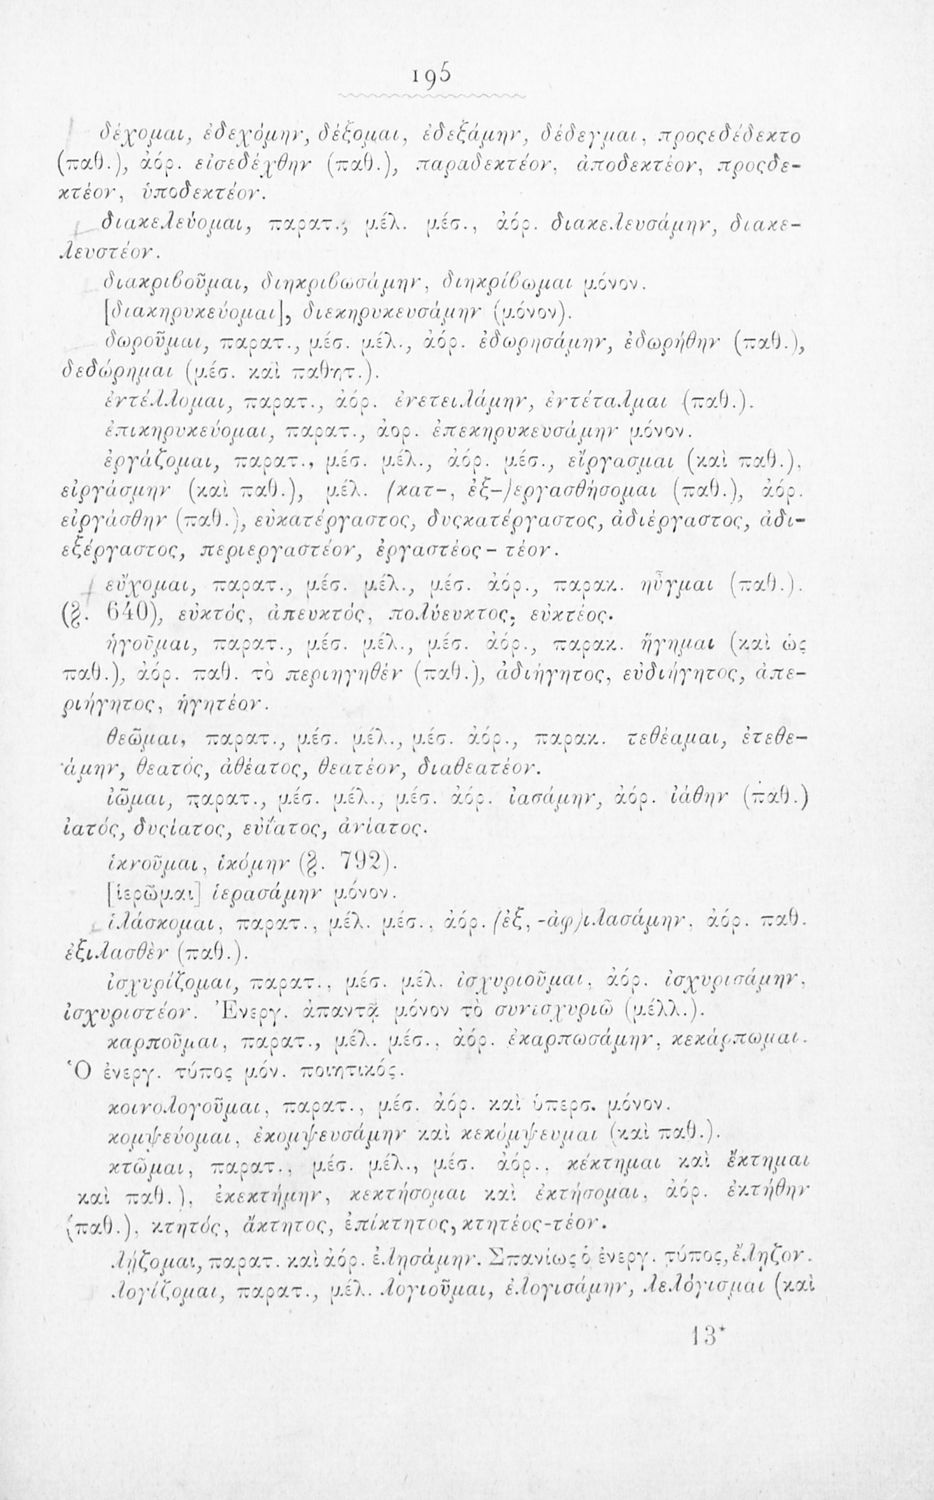 195
δέχομαι, ἐδεχόμην, δέξομαι, ἐδεξάμην, δέδεγμαι, προςεδέδεκτο
(παθ.), ἀόρ. εἰσεδέχθην (παθ.), παραδεκτέον, ἀποδεκτέον, προςδε-
κτέον, ὑποδεκτέον.
διακελεύομαι, παρατ., μέλ. μέσ., ἀόρ. διακελευσάμην, διακε-
λευστέον.
διακριβοῦμαι, διηκριβωσάμην, διηκρίβωμαι μόνον.
[διακηρυκεύομαι], διεκηρυκευσάμην (μόνον).
δωροῦμαι, παρατ., μέσ. μέλ., ἀόρ. ἐδωρησάμην, ἐδωρήθην (παθ.),
δεδώρημαι (μέσ. καὶ παθητ.).
ἐντέλλομαι, παρατ., ἀόρ. ἐνετειλάμην, ἐντέταλμαι (παθ.).
ἐπικηρυκεύομαι, παρατ., ἀορ. ἐπεκηρυκευσάμην μόνον.
ἐργάζομαι, παρατ., μέσ. μέλ., ἀόρ. μέσ., εἴργασμαι (καὶ παθ.),
εἰργάσμην (καὶ παθ.), μέλ. (κατ-, ἐξ-)εργασθήσομαι (παθ.), ἀόρ.
εἰργάσθην (παθ.), εὐκατέργαστος, δυςκατέργαστος, ἀδιέργαστος, ἀδι-
εξέργαστος, περιεργαστέον, ἐργαστέος - τέον.
εὔχομαι, παρατ., μέσ. μέλ., μέσ. ἀόρ., παρακ. ηὖγμαι (παθ.).
(§. 640), εὐκτός, ἀπευκτός, πολύευκτος, εὐκτέος.
ἡγοῦμαι, παρατ., μέσ. μέλ., μέσ. ἀόρ., παρακ. ἥγημαι (καὶ ὡς
παθ.), ἀόρ. παθ. τὸ περιηγηθέν (παθ.), ἀδιήγητος, εὐδιήγητος, ἀπε-
ριήγητος, ἡγητέον.
θεῶμαι, παρατ., μέσ. μέλ., μέσ. ἀόρ., παρακ. τεθέαμαι, ἐτεθε-
άμην, θεατός, ἀθέατος, θεατέον, διαθεατέον.
ἰῶμαι, παρατ., μέσ. μέλ., μέσ. ἀόρ. ἰασάμην, ἀόρ. ἰάθην (παθ.)
ἰατός, δυςίατος, εὐΐατος, ἀνίατος.
ἱκνοῦμαι, ἱκόμην (§. 792).
[ἱερῶμαι] ἱερασάμην μόνον.
ἱλάσκομαι, παρατ., μέλ. μέσ., ἀόρ. (ἐξ, -ἀφ)ιλασάμην, ἀόρ. παθ.
ἐξιλασθὲν (παθ.).
ἰσχυρίζομαι, παρατ., μέσ. μέλ. ἰσχυριοῦμαι, ἀόρ. ἰσχυρισάμην,
ἰσχυριστέον. Ἐνεργ. ἀπαντᾷ μόνον τὸ συνισχυριῶ (μέλλ.).
καρποῦμαι, παρατ., μέλ. μέσ., ἀόρ. ἐκαρπωσάμην, κεκάρπωμαι.
Ὁ ἐνεργ. τύπος μόν. ποιητικός.
κοινολογοῦμαι, παρατ., μέσ. ἀόρ. καὶ ὑπερσ. μόνον.
κομψεύομαι, ἐκομψευσάμην καὶ κεκόμψευμαι (καὶ παθ.).
κτῶμαι, παρατ., μέσ. μέλ., μέσ. ἀόρ., κέκτημαι καὶ ἔκτημαι
καὶ παθ.), ἐκεκτήμην, κεκτήσομαι καὶ ἐκτήσομαι, ἀόρ. ἐκτήθην
(παθ.), κτητός, ἄκτητος, ἐπίκτητος, κτητέος-τέον.
λῄζομαι, παρατ. καὶ ἀόρ. ἐλῃσάμην. Σπανίως ὁ ἐνεργ. τύπος, ἔλῃζον.
λογίζομαι, παρατ., μέλ. λογιοῦμαι, ἐλογισάμην, λελόγισμαι (καὶ
13*